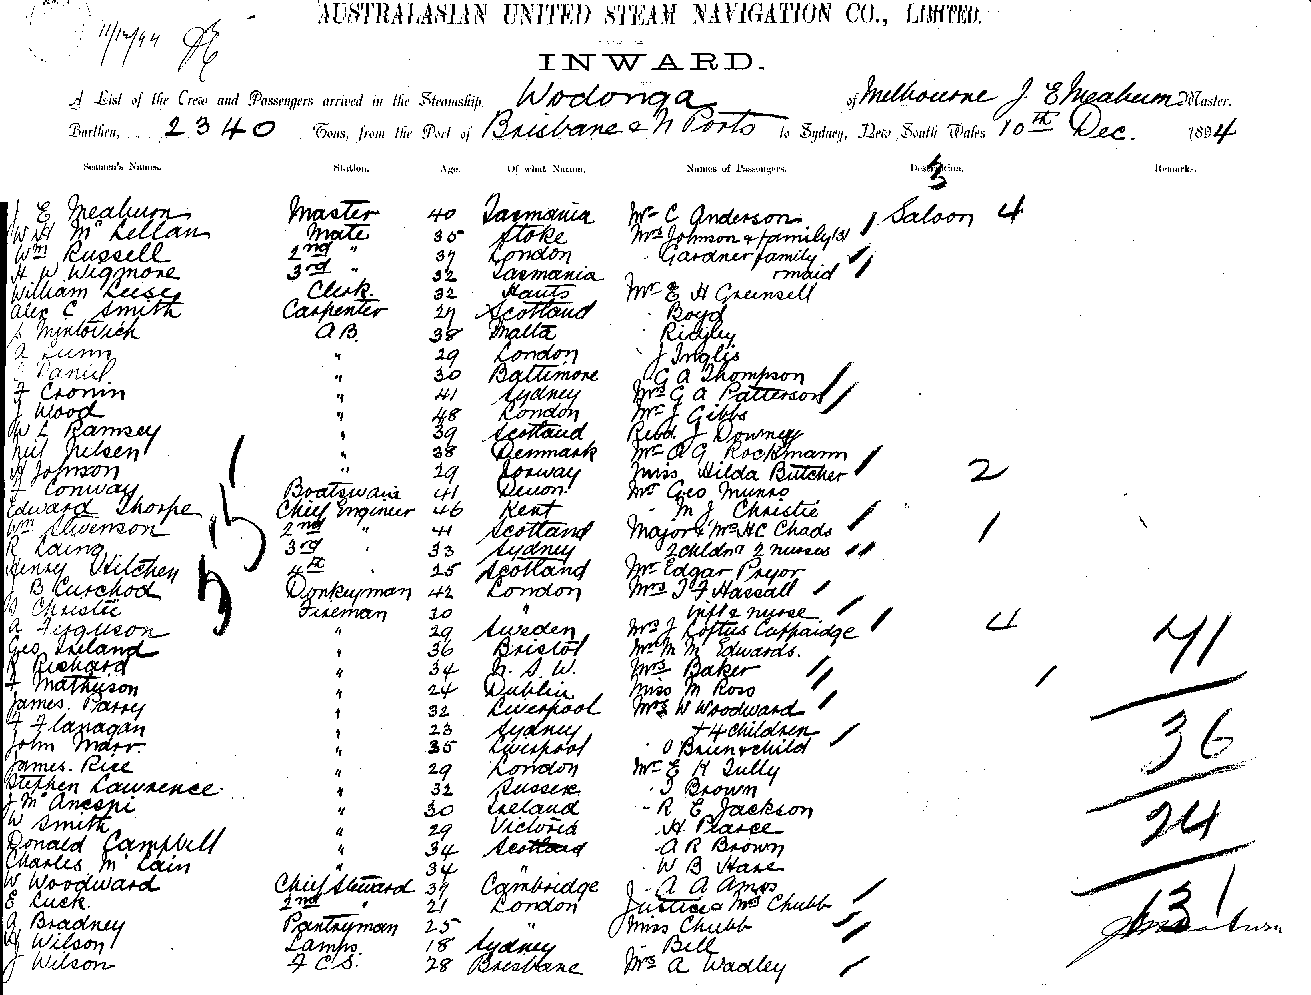 AUSTRALASIAN UNITED STEAM NAVIGATION CO., LIMITED.
11/12/94
INWARD.
A List of the Crew and Passengers arrived in the Steamship Wodonga of Melbourne J E Meaburn Master.
Burthen, 2340 Tons, from the Port of Brisbane & N Ports to Sydney, New South Wales 10th Dec. 1894
Seamen's Names. Station. Age. Of what Nation. Names of Passengers. Description. Remarks.
J E Meaburn Master 40 Tasmania Mr C Anderson Saloon 4
W H McLellan Mate 35 Stoke Mrs Johnson & family (3)
Wm Russell 2nd " 37 London Gardner family
H W Wigmore 3rd " 32 Tasmania maid
William Leise Clerk 32 Hants Mr E H Greensell
Alec C Smith Carpenter 27 Scotland Boyd
Myntovich A B. 38 Malta Ridgley
A Lunn " 29 London J Inglis
Daniel " 30 Baltimore G A Thompson
F Cronin " 41 Sydney Mrs G A Patterson
J Wood " 48 London Mr J Gibbs
W L Ramsey " 39 Scotland Revd J Downey
Neil Neilsen " 38 Denmark Mr A G Rockmann
A Johnson " 29 Norway Miss Hilda Butcher 2
F Conway Boatswain 41 Devon Mr Geo Munro
Edward Thorpe Chief Engineer 46 Kent M J Christie
Wm Stevenson 2nd " 41 Scotland Major & Mrs H C Chads 1
R Laing 3rd " 33 Sydney 2 chldn 2 nurses
Henry Hitchen 4th 25 Scotland Mr Edgar Pryor
J B Curchod Donkeyman 42 London Mrs T F Hassall
Christie Fireman 20 " inft & nurse
A Ferguson " 29 Sweden Mrs J Loftus Cuppaidge 4 41
Geo Ireland " 36 Bristol Mr M M Edwards.
R Richard " 34 N. S. W. Mrs Baker
F Mathewson " 24 Dublin Miss M Ross
James Parry " 32 Liverpool Mrs W Woodward
F Flanagan " 23 Sydney + 4 children 36
John Marr " 35 Liverpool O Brien & child
James Rice " 29 London Mr E H Tully
Stephen Lawrence " 32 Sussex T Brown
J McAnespi " 30 Ireland R E Jackson
W Smith " 29 Victoria H Pearce 24
Donald Campbell " 34 Scotland A R Brown
Charles McLain " 34 " W B Hare
W Woodward Chief Steward 37 Cambridge A A Amos
E Luck 2nd " 21 London Justice & Mrs Chubb 131
A Bradney Pantryman 25 " Miss Chubb
Wilson Lamps 18 Sydney Bell
J Wilson F C S. 28 Brisbane Mrs A Wadley